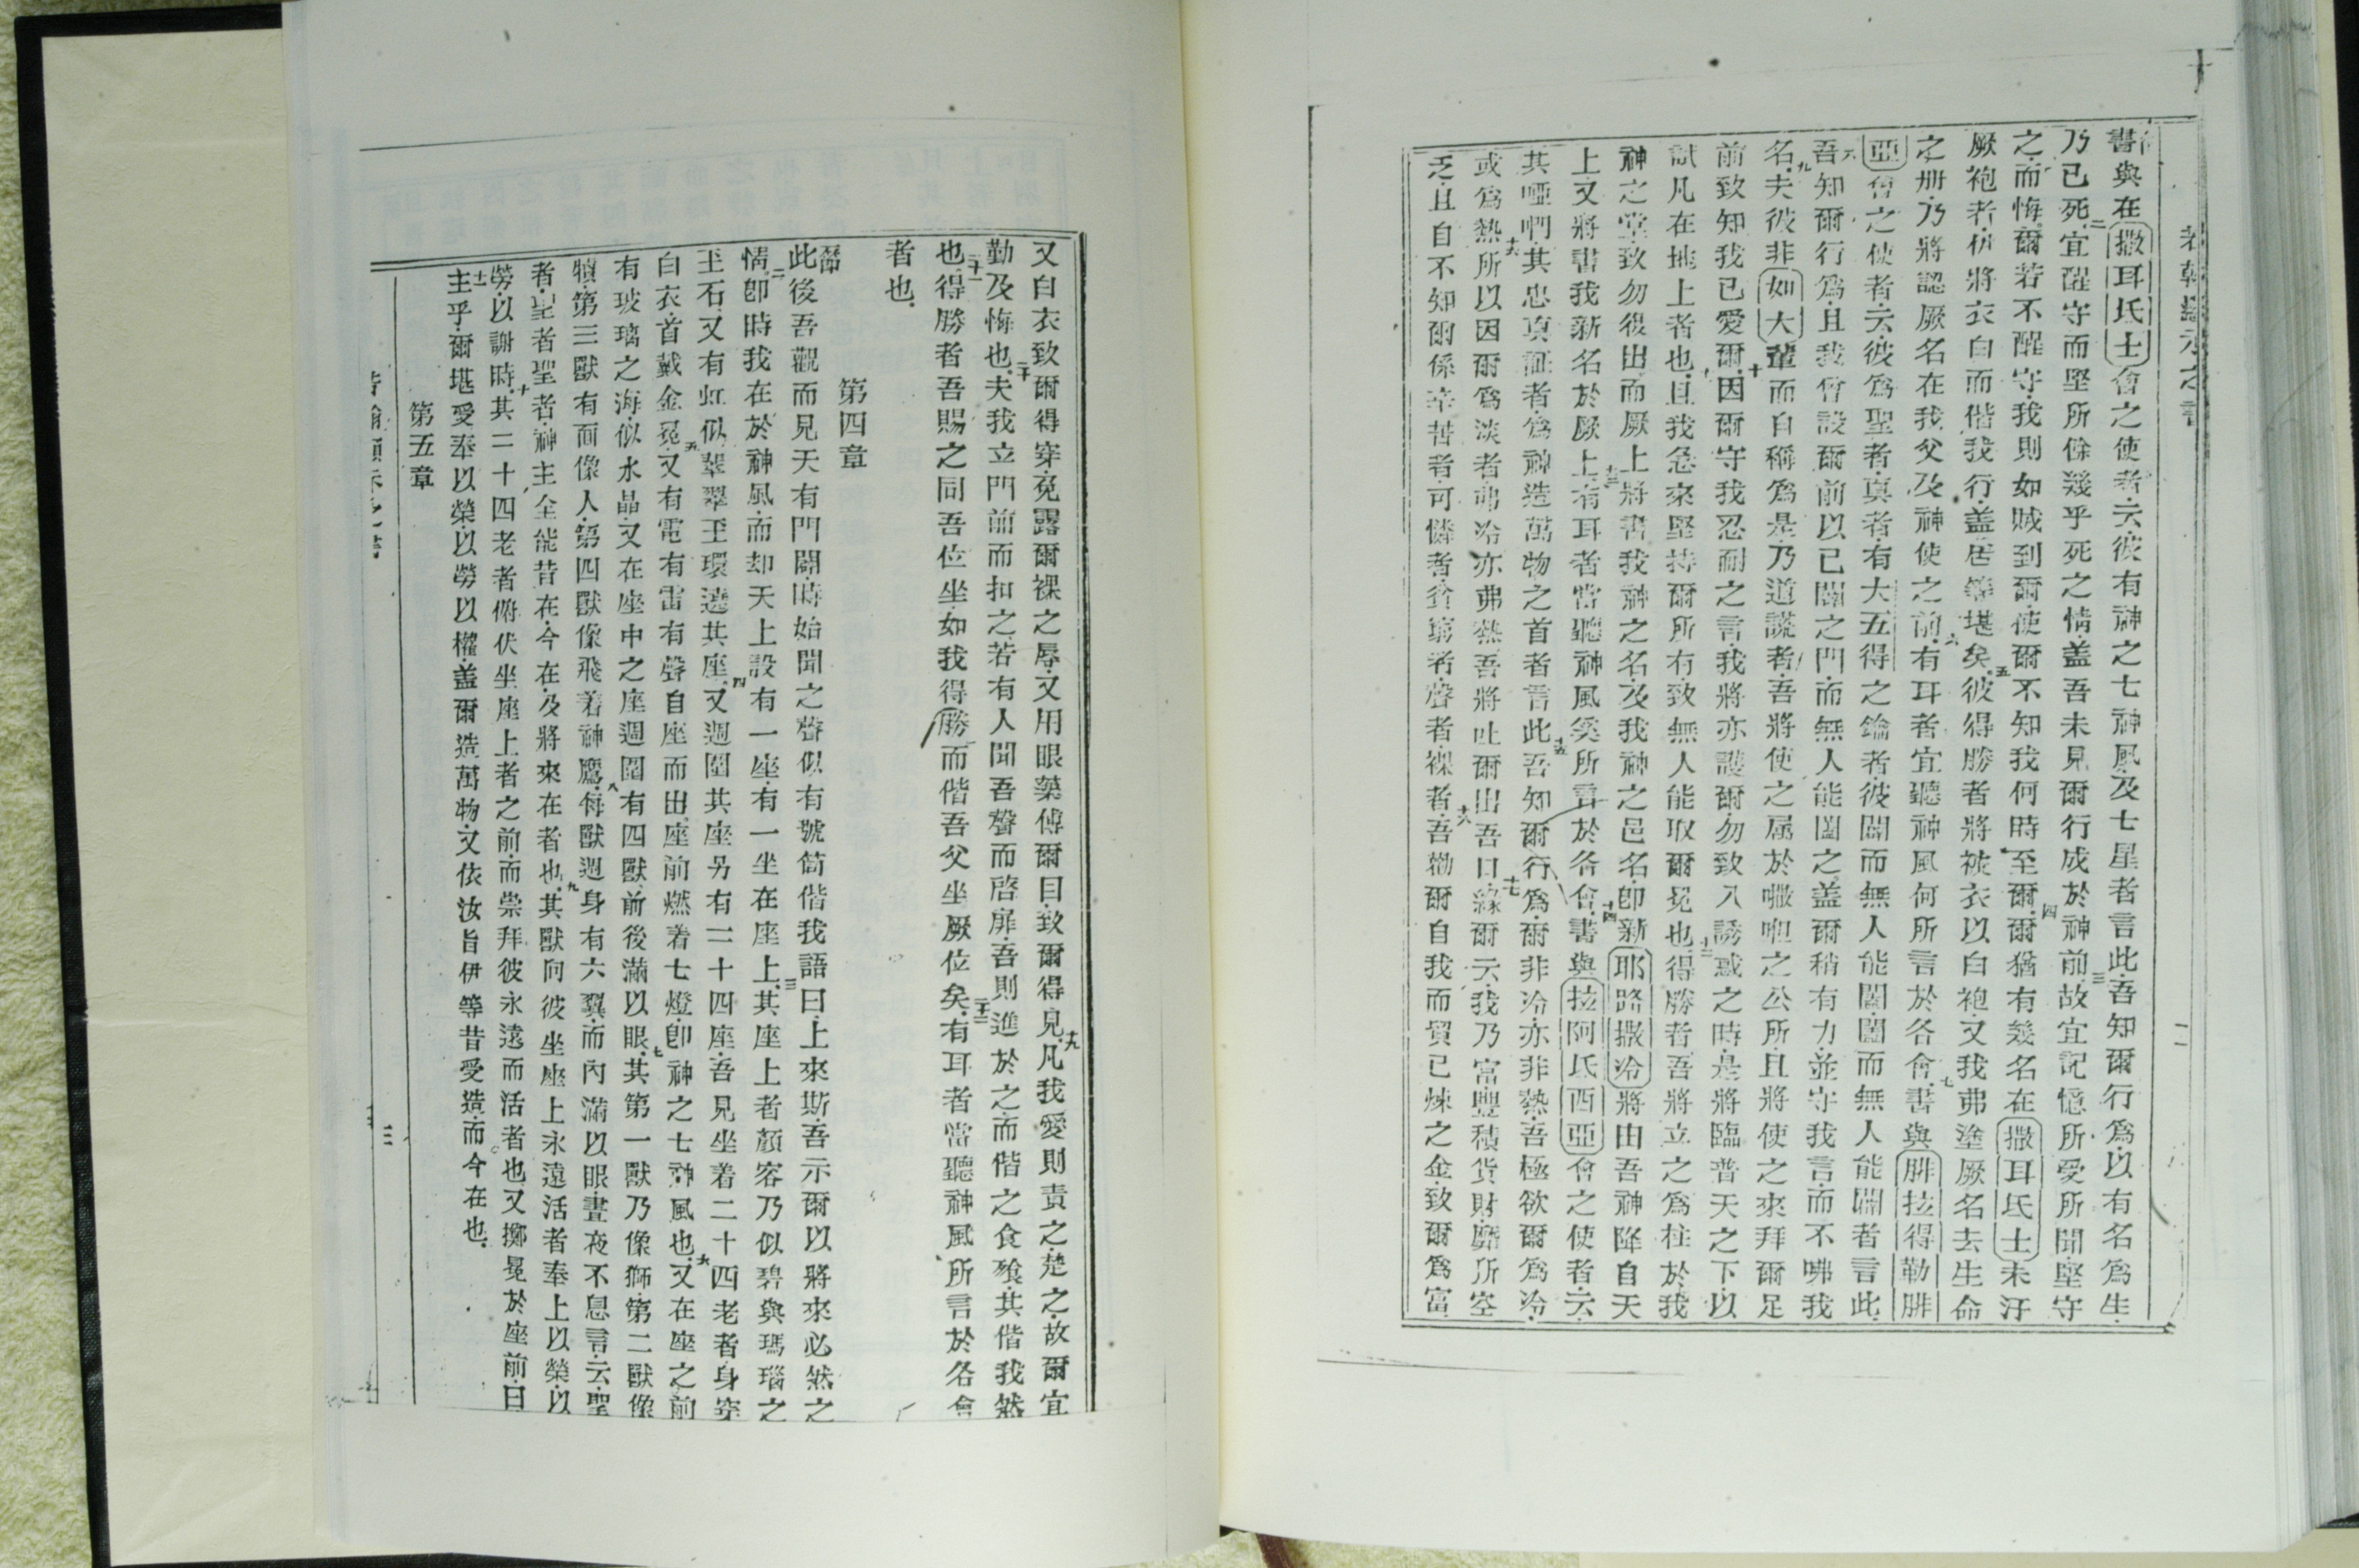 若翰顯示之書
二
書與在撒耳氐士會之使者云彼有神之七神風及七星者言此吾知爾行爲以有名爲生
乃已死二宜醒守而堅所餘幾乎死之情盖吾未見爾行成於神前故三宜記憶所受所聞堅守
之而悔爾若不醒守我則如賊到爾使爾不知我何時至爾四爾猶有幾名在撒耳氐士未汙
厥袍者伊將衣白而偕我行盖居等堪矣五彼得勝者將被衣以白袍又我弗塗厥名去生命
之册乃將認厥名在我父及神使之前六有耳者宜聽神風何所言於各會七書與腓拉得勒腓
亞會之使者云彼爲聖者眞者有大五得之鑰者彼開而無人能闔闔而無人能開者言此
八吾知爾行爲且我曾設爾前以已開之門而無人能闔之盖爾稍有力並守我言而不咈我
名九夫彼非如大輩而自稱爲是乃道謊者吾將使之屬於㘔呾之公所且將使之來拜爾足
前致知我已愛爾十因爾守我忍耐之言我將亦護爾勿致入誘惑之時是將臨普天之下以
試凡在地上者也且我急來堅持爾所有致無人能取爾冕也十二得勝者吾將立之爲柱於我
神之堂致勿復出而厥上將書我神之名及我神之邑名卽新耶路撒冷將由吾神降自天
上又將書我新名於厥上十三有耳者當聽神風奚所言於各會十四書與拉阿氐西亞會之使者云
其啞㗃其忠眞証者爲神造萬物之首者言此十五吾知爾行爲爾非冷亦非熱吾極欲爾爲冷
或爲熱十六所以因爾爲淡者弗冷亦弗熱吾將吐爾出吾口十七緣爾云我乃富豐積貨財靡所空
乏且自不知爾係辛苦者可憐者貧窮者瞽者裸者十八吾勸爾自我而買已煉之金致爾爲富
又白衣致爾得穿免露爾裸之辱又用眼藥傅爾目致爾得見十九凡我愛則責之楚之故爾宜
勤及悔也二十夫我立門前而扣之若有人聞吾聲而啓扉吾則進於之而偕之食飱其偕我然
也二十一得勝者吾賜之同吾位坐如我得勝而偕吾父坐厥位矣二十二有耳者當聽神風所言於各會
者也
第四章
一節此後吾觀而見天有門開時始聞之聲似有號筒偕我語曰上來斯吾示爾以將來必然之
情二卽時我在於神風而却天上設有一座有一坐在座上三其座上者顏容乃似碧與瑪瑙之
玉石又有虹似翠翠玉環遶其座四又週圍其座另有二十四座吾見坐着二十四老者身穿
白衣首戴金冕五又有電有雷有聲自座而出座前燃着七燈卽神之七神風也六又在座之前
有玻璃之海似水晶又在座中之座週圍有四獸前後滿以眼七其第一獸乃像獅第二獸像
犢第三獸有面像人第四獸像飛着神鷹八每獸週身有六翼而內滿以眼晝夜不息言云聖
者聖者聖者神主全能昔在今在及將來在者也九其獸向彼坐座上永遠活者奉上以榮以
勞以謝時十其二十四老者俯伏坐座上者之前而崇拜彼永遠而活者也又擲冕於座前曰
十一主乎爾堪受奉以榮以勞以權盖爾造萬物又依汝旨伊等昔受造而今在也
第五章
三